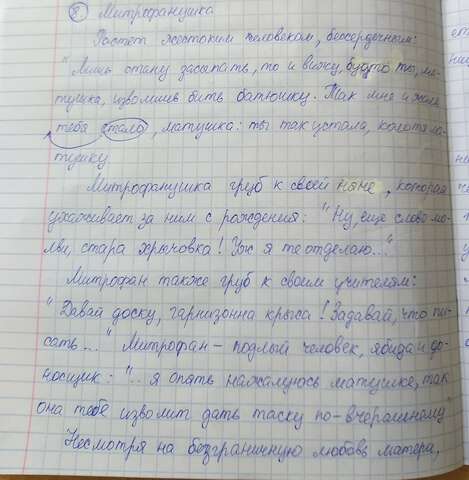 8) Митрофанушка
Растёт жестоким человеком, бессердечным:
"Лишь стану засыпать, то и вижу, будто ты, ма-
тушка, изволишь бить батюшку. Так мне и жаль
тебя стало, матушка: ты так устала, колотя ба-
тюшку
Митрофанушка груб к своей няне, которая
ухаживает за ним с рождения: "Ну, еще слово мо-
лви, стара хрычовка! Уж я те отделаю..."
Митрофан также груб к своим учителям:
"Давай доску, гарнизонна крыса! Задавай, что пи-
сать..." Митрофан - подлый человек, ябида и до-
носщик: "... я опять нажалуюсь матушке, так
она тебе изволит дать таску по-вчерашнему"
Несмотря на безграничную любовь матери,